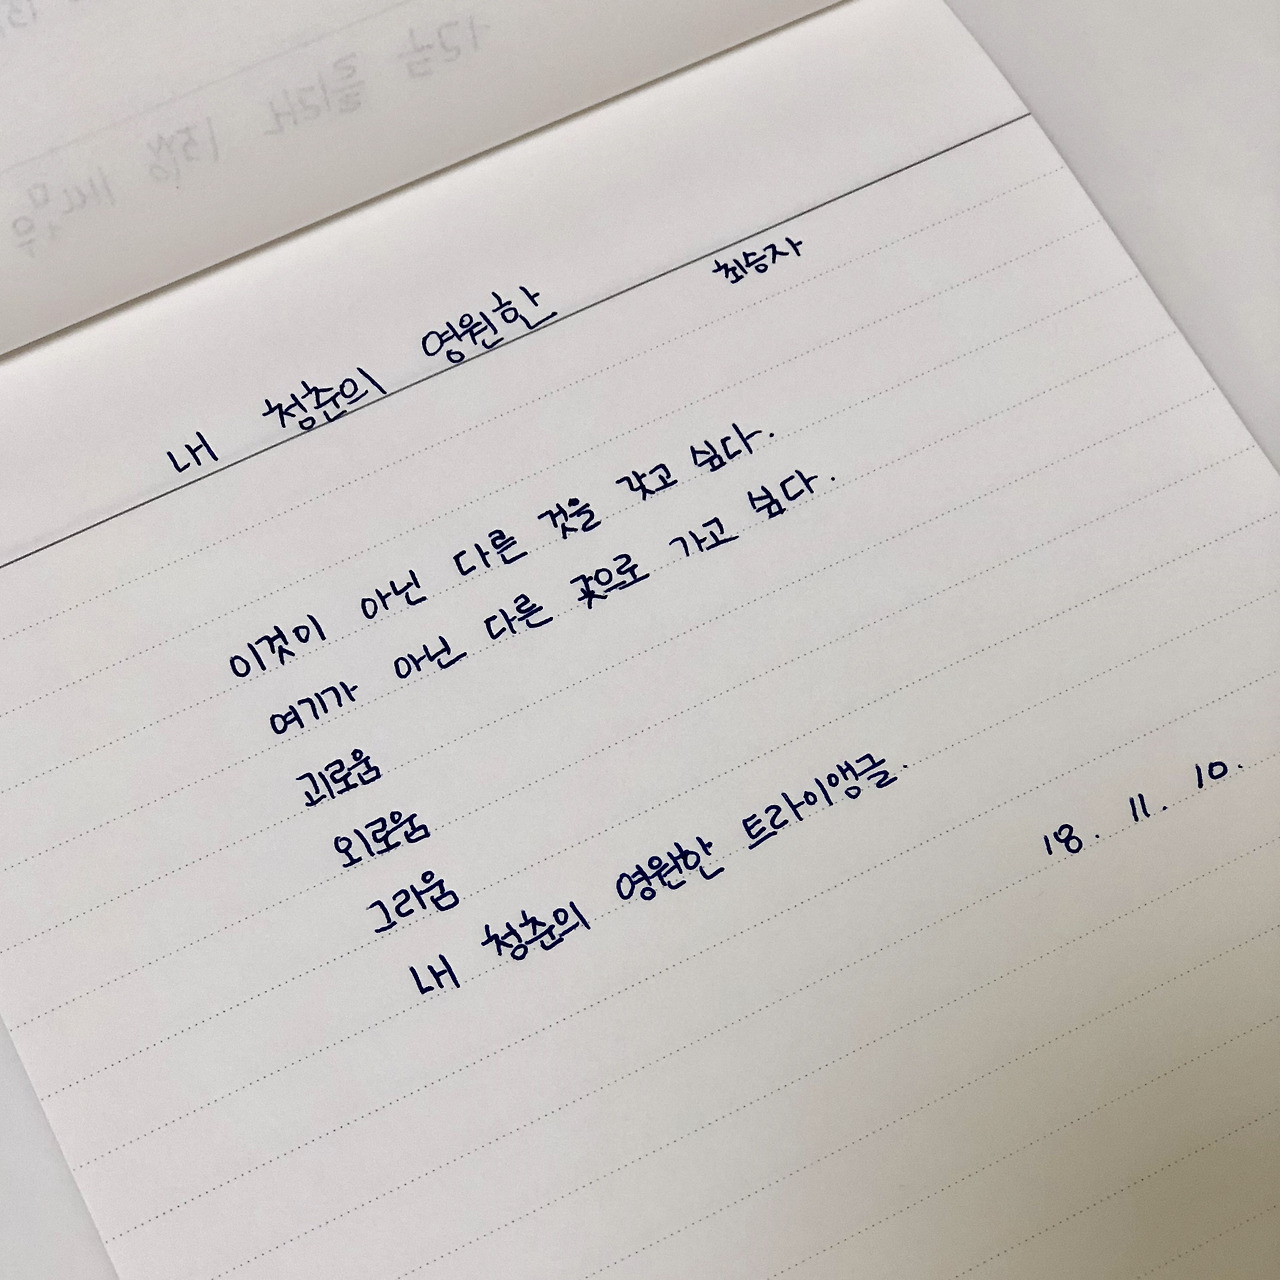 내 청춘의 영원한
최승자
이것이 아닌 다른 것을 갖고 싶다.
여기가 아닌 다른 곳으로 가고 싶다.
괴로움
외로움
그리움
내 청춘의 영원한 트라이앵글.
18. 11. 10.